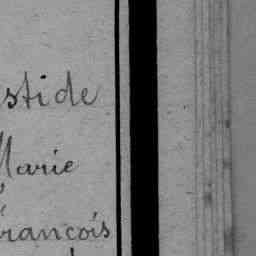 stide
Marie
François